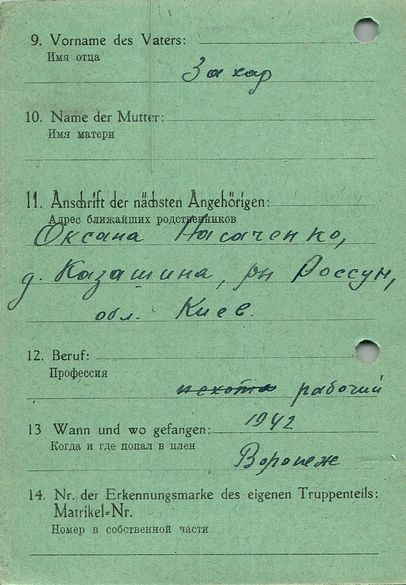 9. Vorname des Vaters:
Имя отца
Захар
10. Name der Mutter:
Имя матери
11. Anschrift der nächsten Angehörigen:
Адрес ближайших родственников
Оксана Насаченко,
д. Казашина, рн Россун,
обл. Киев.
12. Beruf:
Профессия
пехота рабочий
13 Wann und wo gefangen: 1942
Когда и где попал в плен
Воронеж
14. Nr. der Erkennungsmarke des eigenen Truppenteils:
Matrikel-Nr.
Номер в собственной части